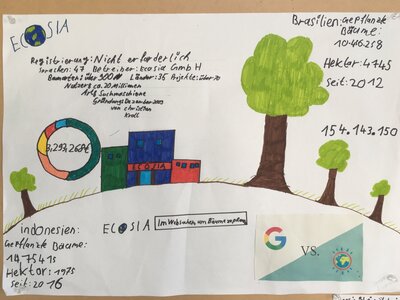 ECOSIA
Registrierung: Nicht erforderlich
Sprachen: 47 Betreiber: Ecosia GmbH
Baumarten: über 900 Länder: 35 Projekte: über 70
Nutzer: ca. 20 Millionen
Art: Suchmaschine
Gründung: Dezember 2009
von Christian
Kroll
Brasilien: Gepflanzte
Bäume:
1046258
Hektar: 4745
seit: 2012
154.143.150
3,293,268€
ECOSIA
indonesien:
Gepflanzte Bäume:
Hektar: 1975
seit: 2016
ECOSIA
Im Websuchen um Bäume
G
VS.